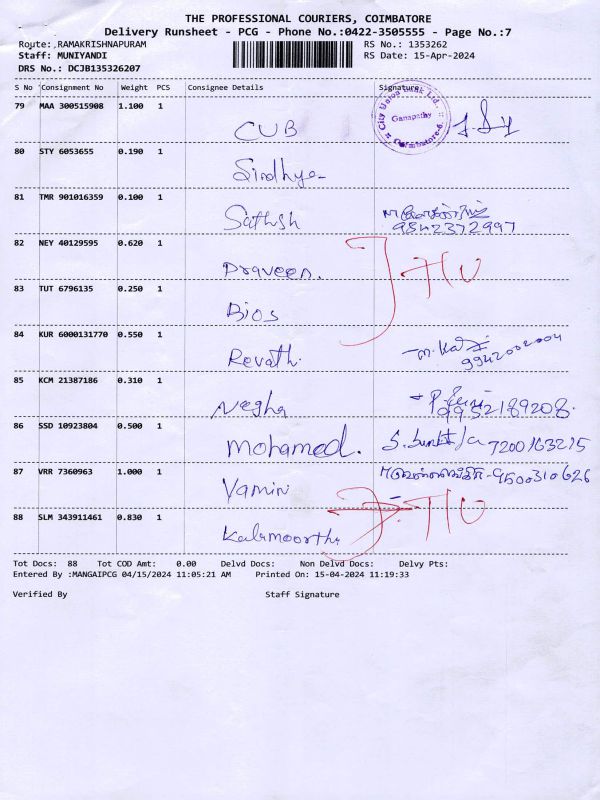 THE PROFESSIONAL COURIERS, COIMBATORE
Delivery Runsheet - PCG - Phone No.:0422-3505555 - Page No.:7
Route: ,RAMAKRISHNAPURAM RS No.: 1353262
Staff: MUNIYANDI RS Date: 15-Apr-2024
DRS No.: DCJB135326207
S No Consignment No Weight PCS Consignee Details Signature
79 MAA 300515908 1.100 1 CUB
City Union Bank Ltd.
Ganapathy
Coimbatore-6.
80 STY 6053655 0.190 1 Sindhya
81 TMR 901016359 0.100 1 Sathish
9842372997
82 NEY 40129595 0.620 1 Praveen.
83 TUT 6796135 0.250 1 Bios
84 KUR 6000131770 0.550 1 Revath.
9942002004
85 KCM 21387186 0.310 1 Negha
9952189208.
86 SSD 10923804 0.500 1 Mohamed. 7200163215
87 VRR 7360963 1.000 1 Yamini -9500310626
88 SLM 343911461 0.830 1 Kalamoorthy
Tot Docs: 88 Tot COD Amt: 0.00 Delvd Docs: Non Delvd Docs: Delvy Pts:
Entered By :MANGAIPCG 04/15/2024 11:05:21 AM Printed On: 15-04-2024 11:19:33
Verified By Staff Signature